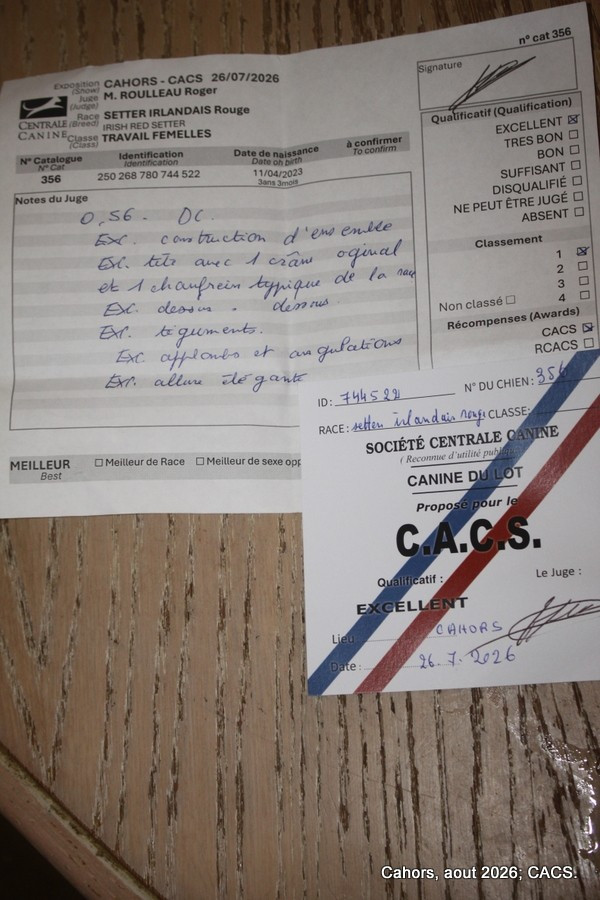 n° cat 356
Exposition (Show) CAHORS - CACS 26/07/2026
Juge (Judge) M. ROULLEAU Roger
Race (Breed) SETTER IRLANDAIS Rouge
IRISH RED SETTER
Classe (Class) TRAVAIL FEMELLES
CENTRALE CANINE
N° Catalogue Identification Date de naissance à confirmer
N° Cat Identification Date on birth To confirm
356 250 268 780 744 522 11/04/2023
3ans 3mois
Notes du Juge
0,56 - DC.
Exc. construction d'ensemble
Exc. tête avec 1 crâne oginal
et 1 chanfrein typique de la race
Exc. dessus - dessous.
Exc. téguments.
Exc. applombs et angulations
Exc. allure élégante
MEILLEUR
Best
Meilleur de Race Meilleur de sexe opp
Signature
Qualificatif (Qualification)
EXCELLENT
TRES BON
BON
SUFFISANT
DISQUALIFIÉ
NE PEUT ÊTRE JUGÉ
ABSENT
Classement
1
2
3
Non classé 4
Récompenses (Awards)
CACS
RCACS
ID: 744522 N° DU CHIEN: 356
RACE: setter irlandais rouge CLASSE:
SOCIÉTÉ CENTRALE CANINE
(Reconnue d'utilité publique)
CANINE DU LOT
Proposé pour le
C.A.C.S.
Qualificatif : Le Juge :
EXCELLENT
Lieu CAHORS
Date : 26.7.2026
Cahors, aout 2026; CACS.